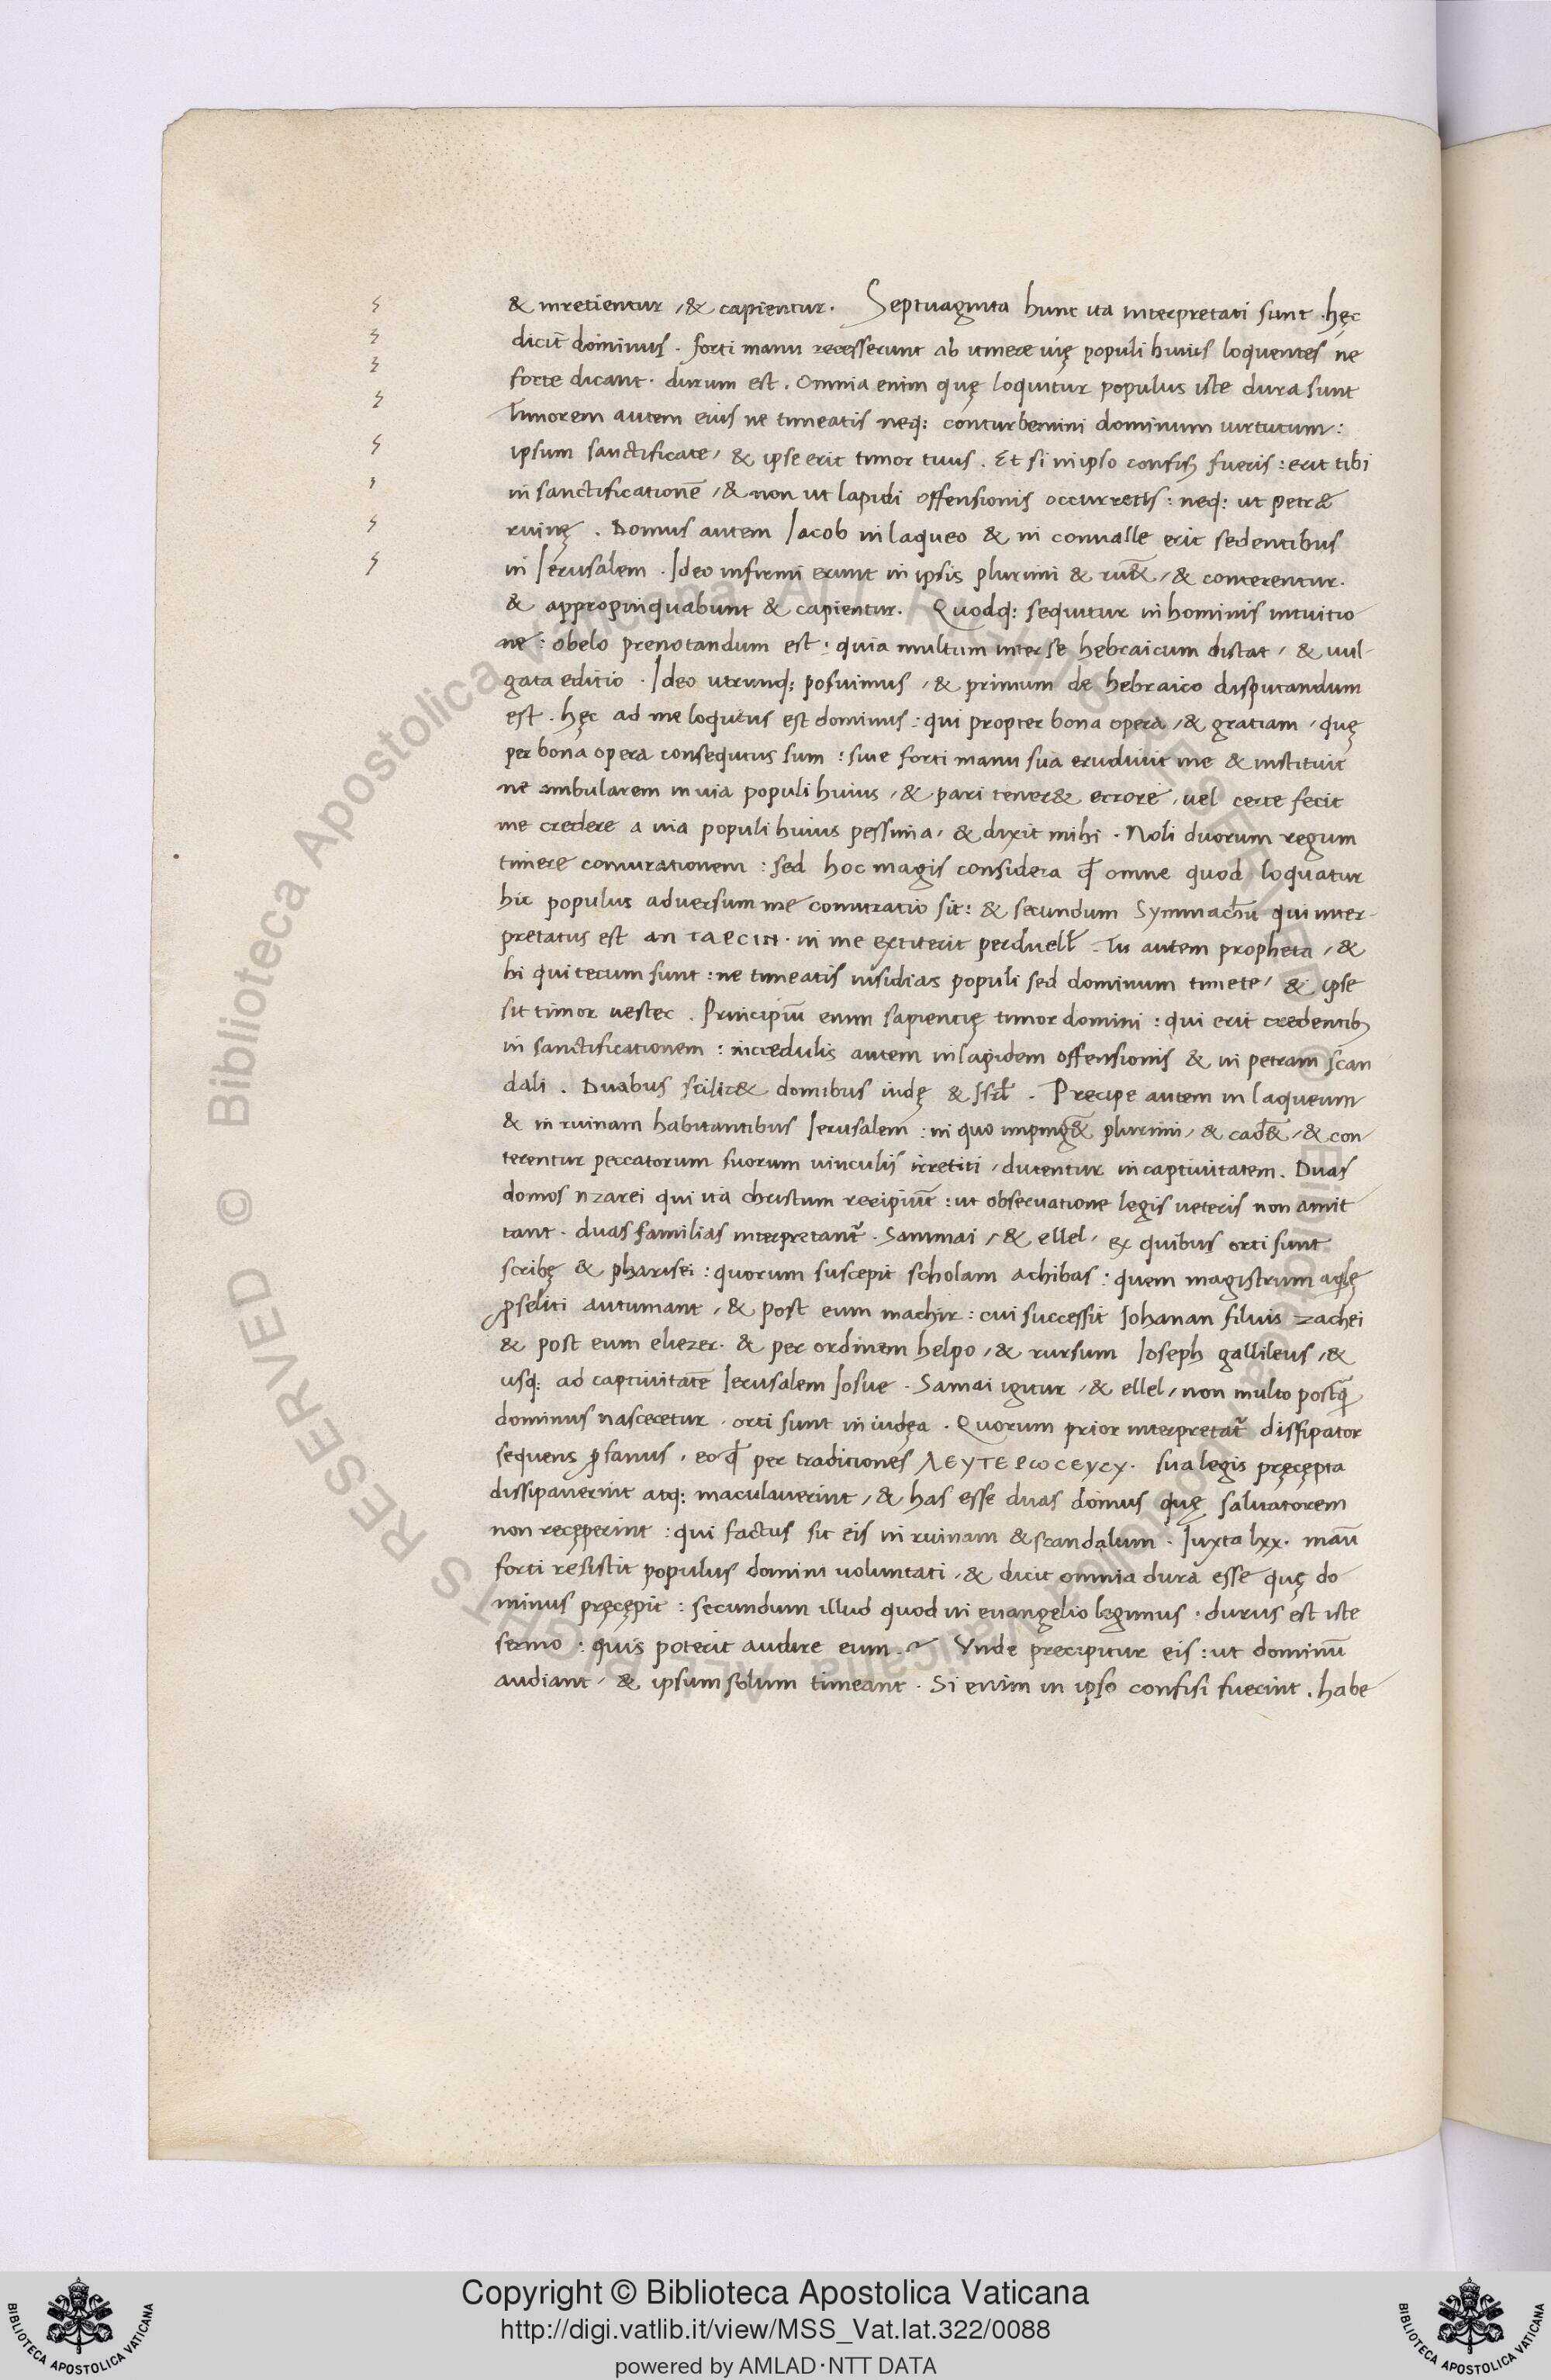 & inretientur, & capientur. Septuaginta hunc ita interpretati sunt. hęc
dicit̄ dominus. forti manu recesserunt ab itinere uię populi huius loquentes ne
forte dicant. durum est. Omnia enim quę loquitur populus iste dura sunt
Timorem autem eius ne timeatis neq: conturbemini dominum uirtutum:
ipsum sanctificate, & ipse erit timor tuus. Et si in ipso confisꝫ fueris: erit tibi
in sanctificationē, & non ut lapidi offensionis occurretis: neq: ut petr&
ruinę. Domus autem Iacob in laqueo & in conualle erit sedentibus
in Ierusalem. Ideo infirmi erunt in ipsis plurimi & ru&̄, & conterentur.
& appropinquabunt & capientur. Quodq: sequitur in hominis intuitio
ne: obelo prenotandum est: quia multum inter se hebraicum distat, & uul-
gata editio. Ideo utrunq: posuimus, & primum de hebraico disputandum
est. hęc ad me loqutus est dominus: qui propter bona opera, & gratiam, quę
per bona opera consequtus sum: siue forti manu sua erudiuit me & instituit
ne ambularem in uia populi huius, & pari tener& errore, uel certe fecit
me credere a uia populi huius pessima, & dixit mihi. Noli duorum regum
timere coniurationem: sed hoc magis considera qđ omne quod loquatur
hic populus aduersum me coniuratio sit: & secundum Symmachū qui inter-
pretatus est an ταρcιн. in me extiterit perduell̄. Tu autem propheta, &
hi qui tecum sunt: ne timeatis insidias populi sed dominum timete, & ipse
sit timor uester. Principiū enim sapientię timor domini: qui erit credentibꝫ
in sanctificationem: incredulis autem in lapidem offensionis & in petram scan
dali. Duabus scilic& domibus iudę & Isrł. Precipe autem in laqueum
& in ruinam habitantibus Ierusalem: in quo imping&̄ plurimi, & cad&̄, & con
terentur peccatorum suorum uinculis irretiti, ducentur in captiuitatem. Duas
domos nzarei qui ita christum recipiūt: ut obseruatione legis ueteris non amit
tant. duas familias interpretant᷑. Sammai, & ellel, ex quibus orti sunt
scribę & pharisei: quorum suscepit scholam achibas: quem magistrum aqlę
ꝓseliti autumant, & post eum machir: cui successit Iohanan filius zachei
& post eum eliezer. & per ordinem helpo, & rursum Ioseph gallileus, &
usq: ad captiuitatē Ierusalem Iosue. Samai igitur, & ellel, non multo postq̄
dominus nasceretur. orti sunt in iudęa. Quorum prior interpretat᷑ dissipator
sequens ꝓfanus. eo qđ per traditiones ΛΕΥΤΕΡωCΕΥCΥ. sua legis pręcepta
dissipauerint atq: maculauerint, & has esse duas domus quę saluatorem
non recęperint: qui factus sit eis in ruinam & scandalum. Iuxta lxx. manū
forti resistit populus domini uoluntati, & dicit omnia dura esse quę do
minus pręcępit: secundum illud quod in euangelio legimus. durus est iste
sermo: quis poterit audire eum. Vnde precipitur eis: ut dominū
audiant, & ipsum solum timeant. Si enim in ipso confisi fuerint. habe
Copyright © Biblioteca Apostolica Vaticana
http://digi.vatlib.it/view/MSS_Vat.lat.322/0088
powered by AMLAD·NTT DATA